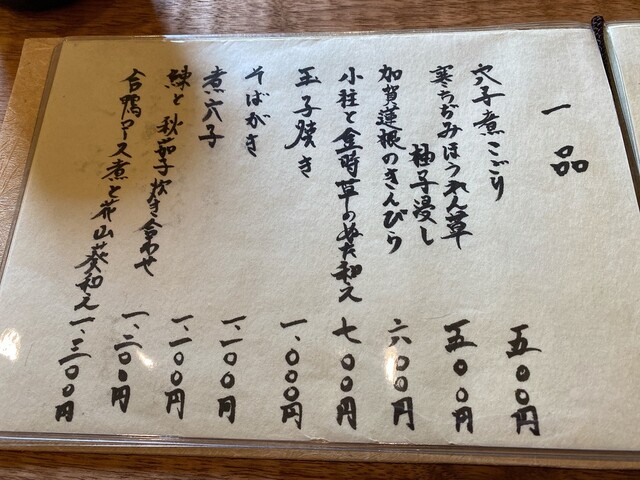 一品
穴子煮こごり 五〇〇円
寒ちぢみほうれん草
柚子浸し 五〇〇円
加賀蓮根のきんぴら 六〇〇円
小柱と金時草のぬた和え 七〇〇円
玉子焼き 一、〇〇〇円
そばがき 一、一〇〇円
煮穴子 一、一〇〇円
鰊と秋茄子炊き合わせ 一、二〇〇円
合鴨ロース煮と花山葵和え 一、三〇〇円